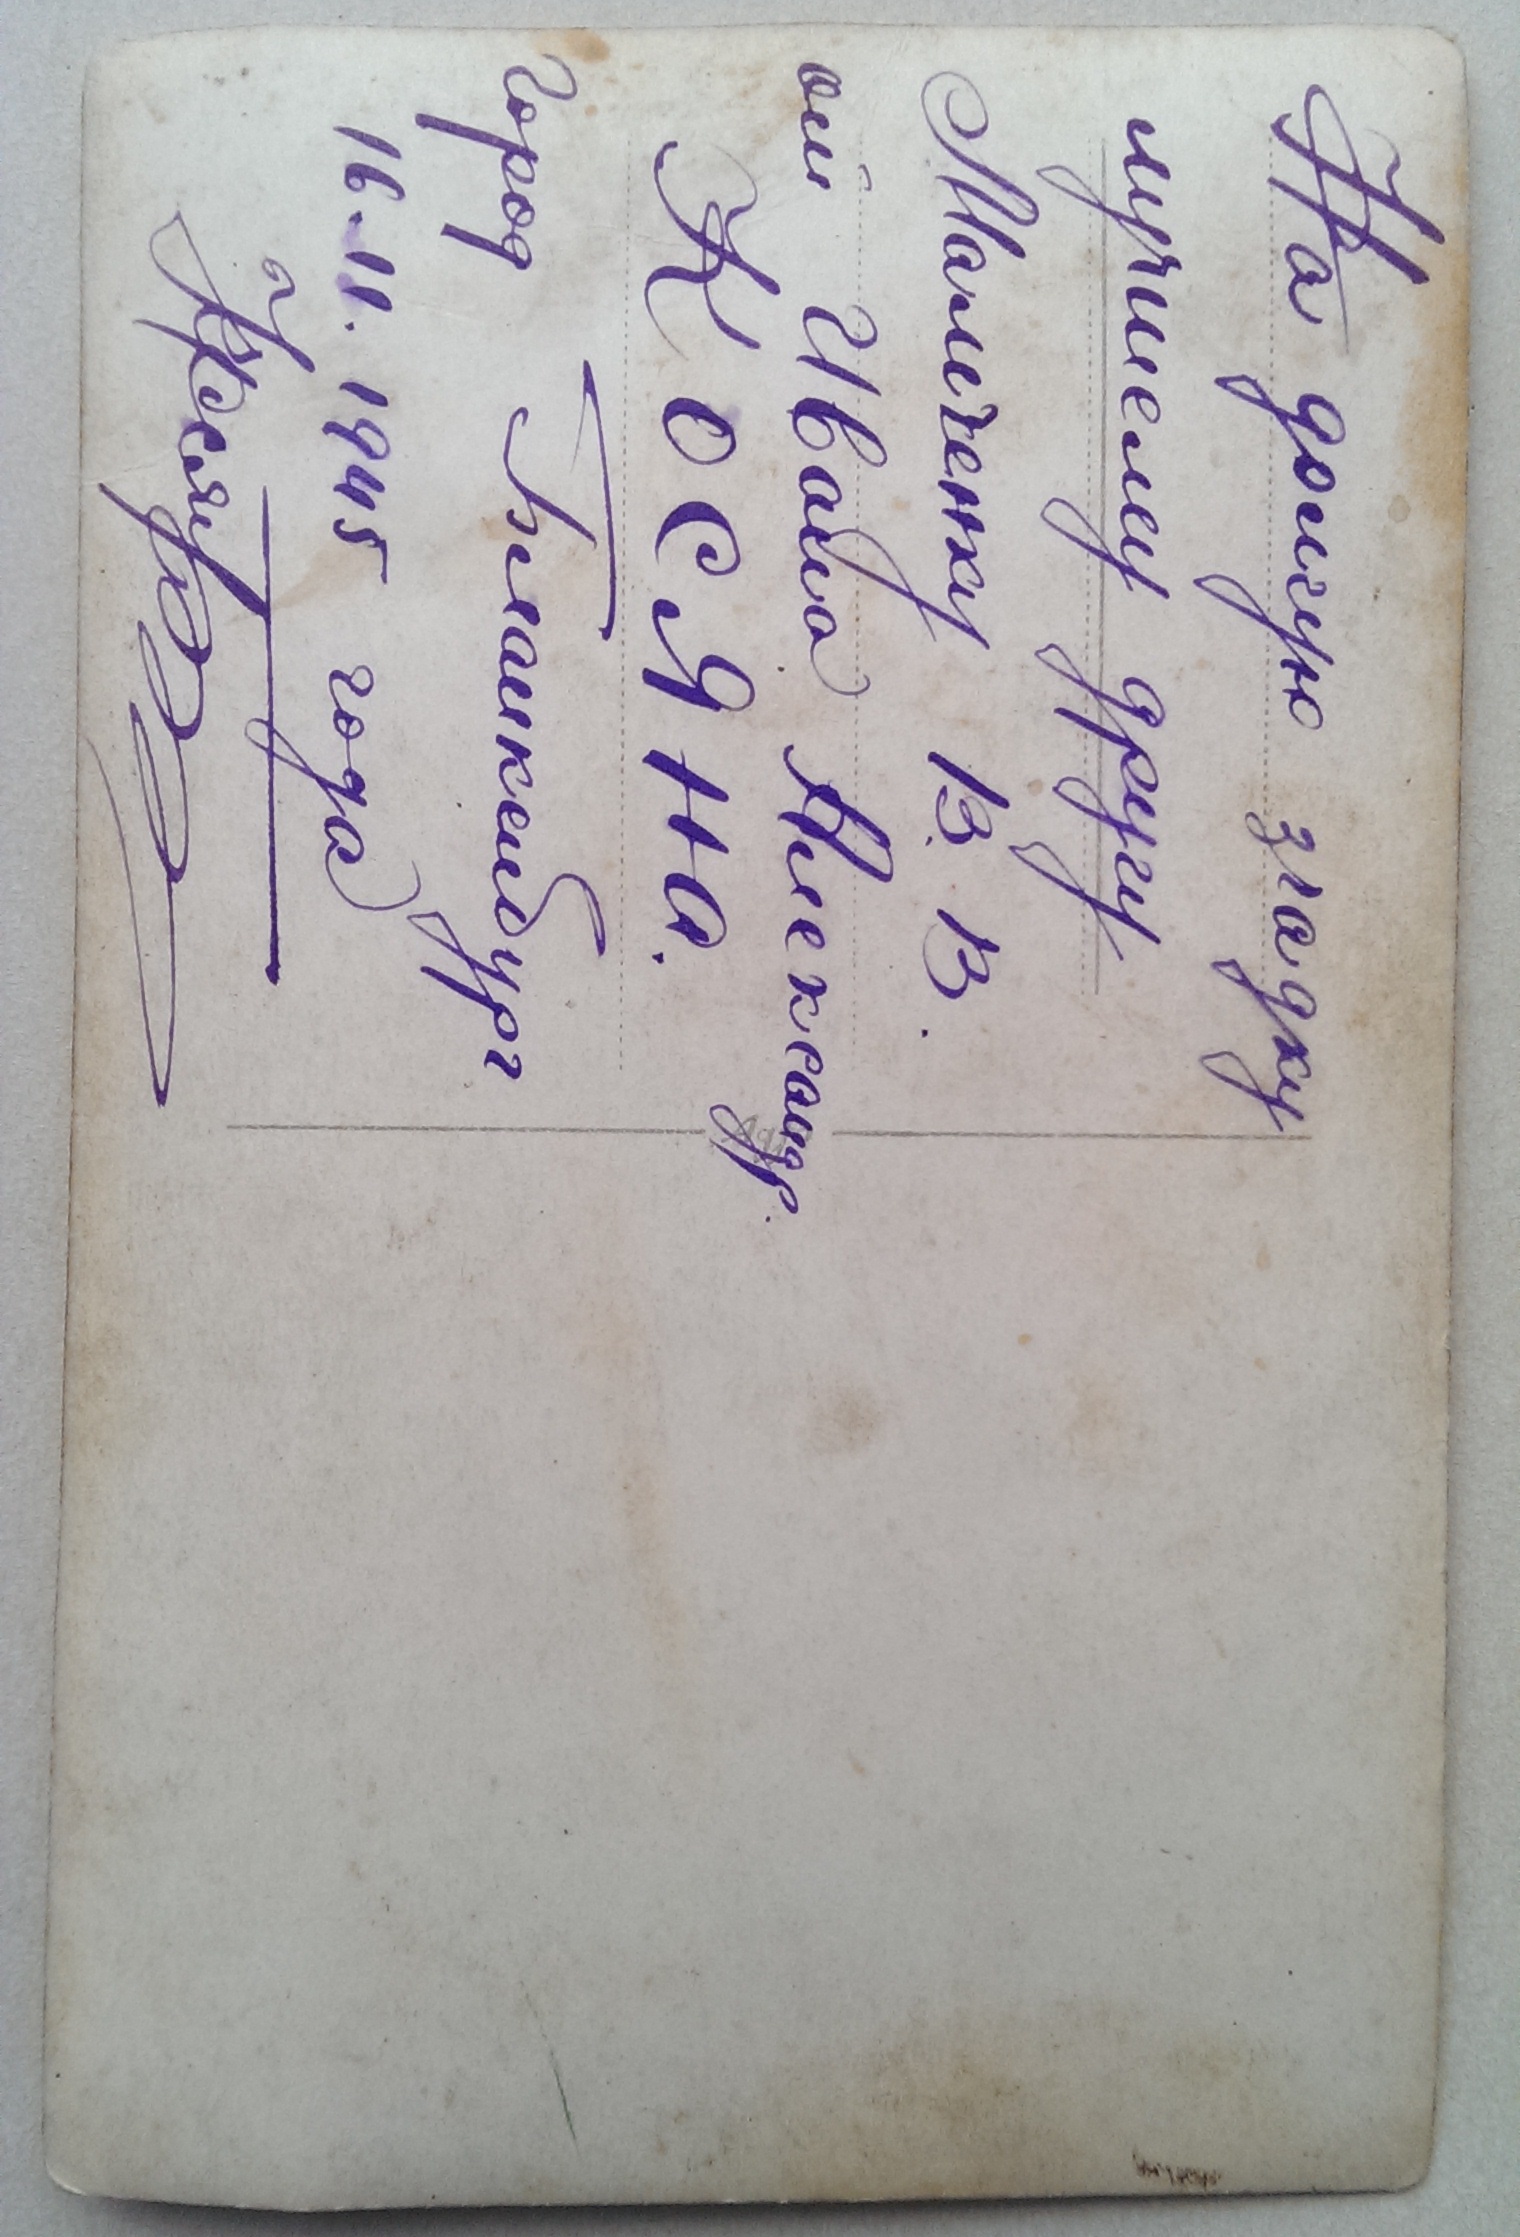 На долгую згадку
лучшему другу
Маличенку В. В.
от Ивана Александр.
КОСЯНА.
город Бланкенбург
16-11. 1945 года